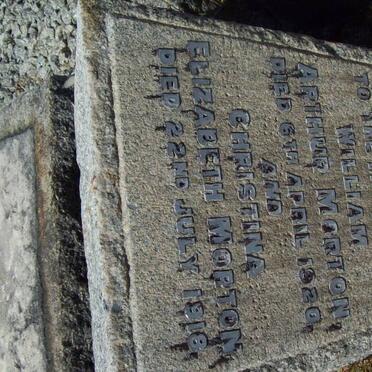 TO THE
WILLIAM
ARTHUR MORTON,
DIED 6TH APRIL 1920.
AND
CHRISTINA
ELIZABETH MORTON
DIED 22ND JULY 1918.